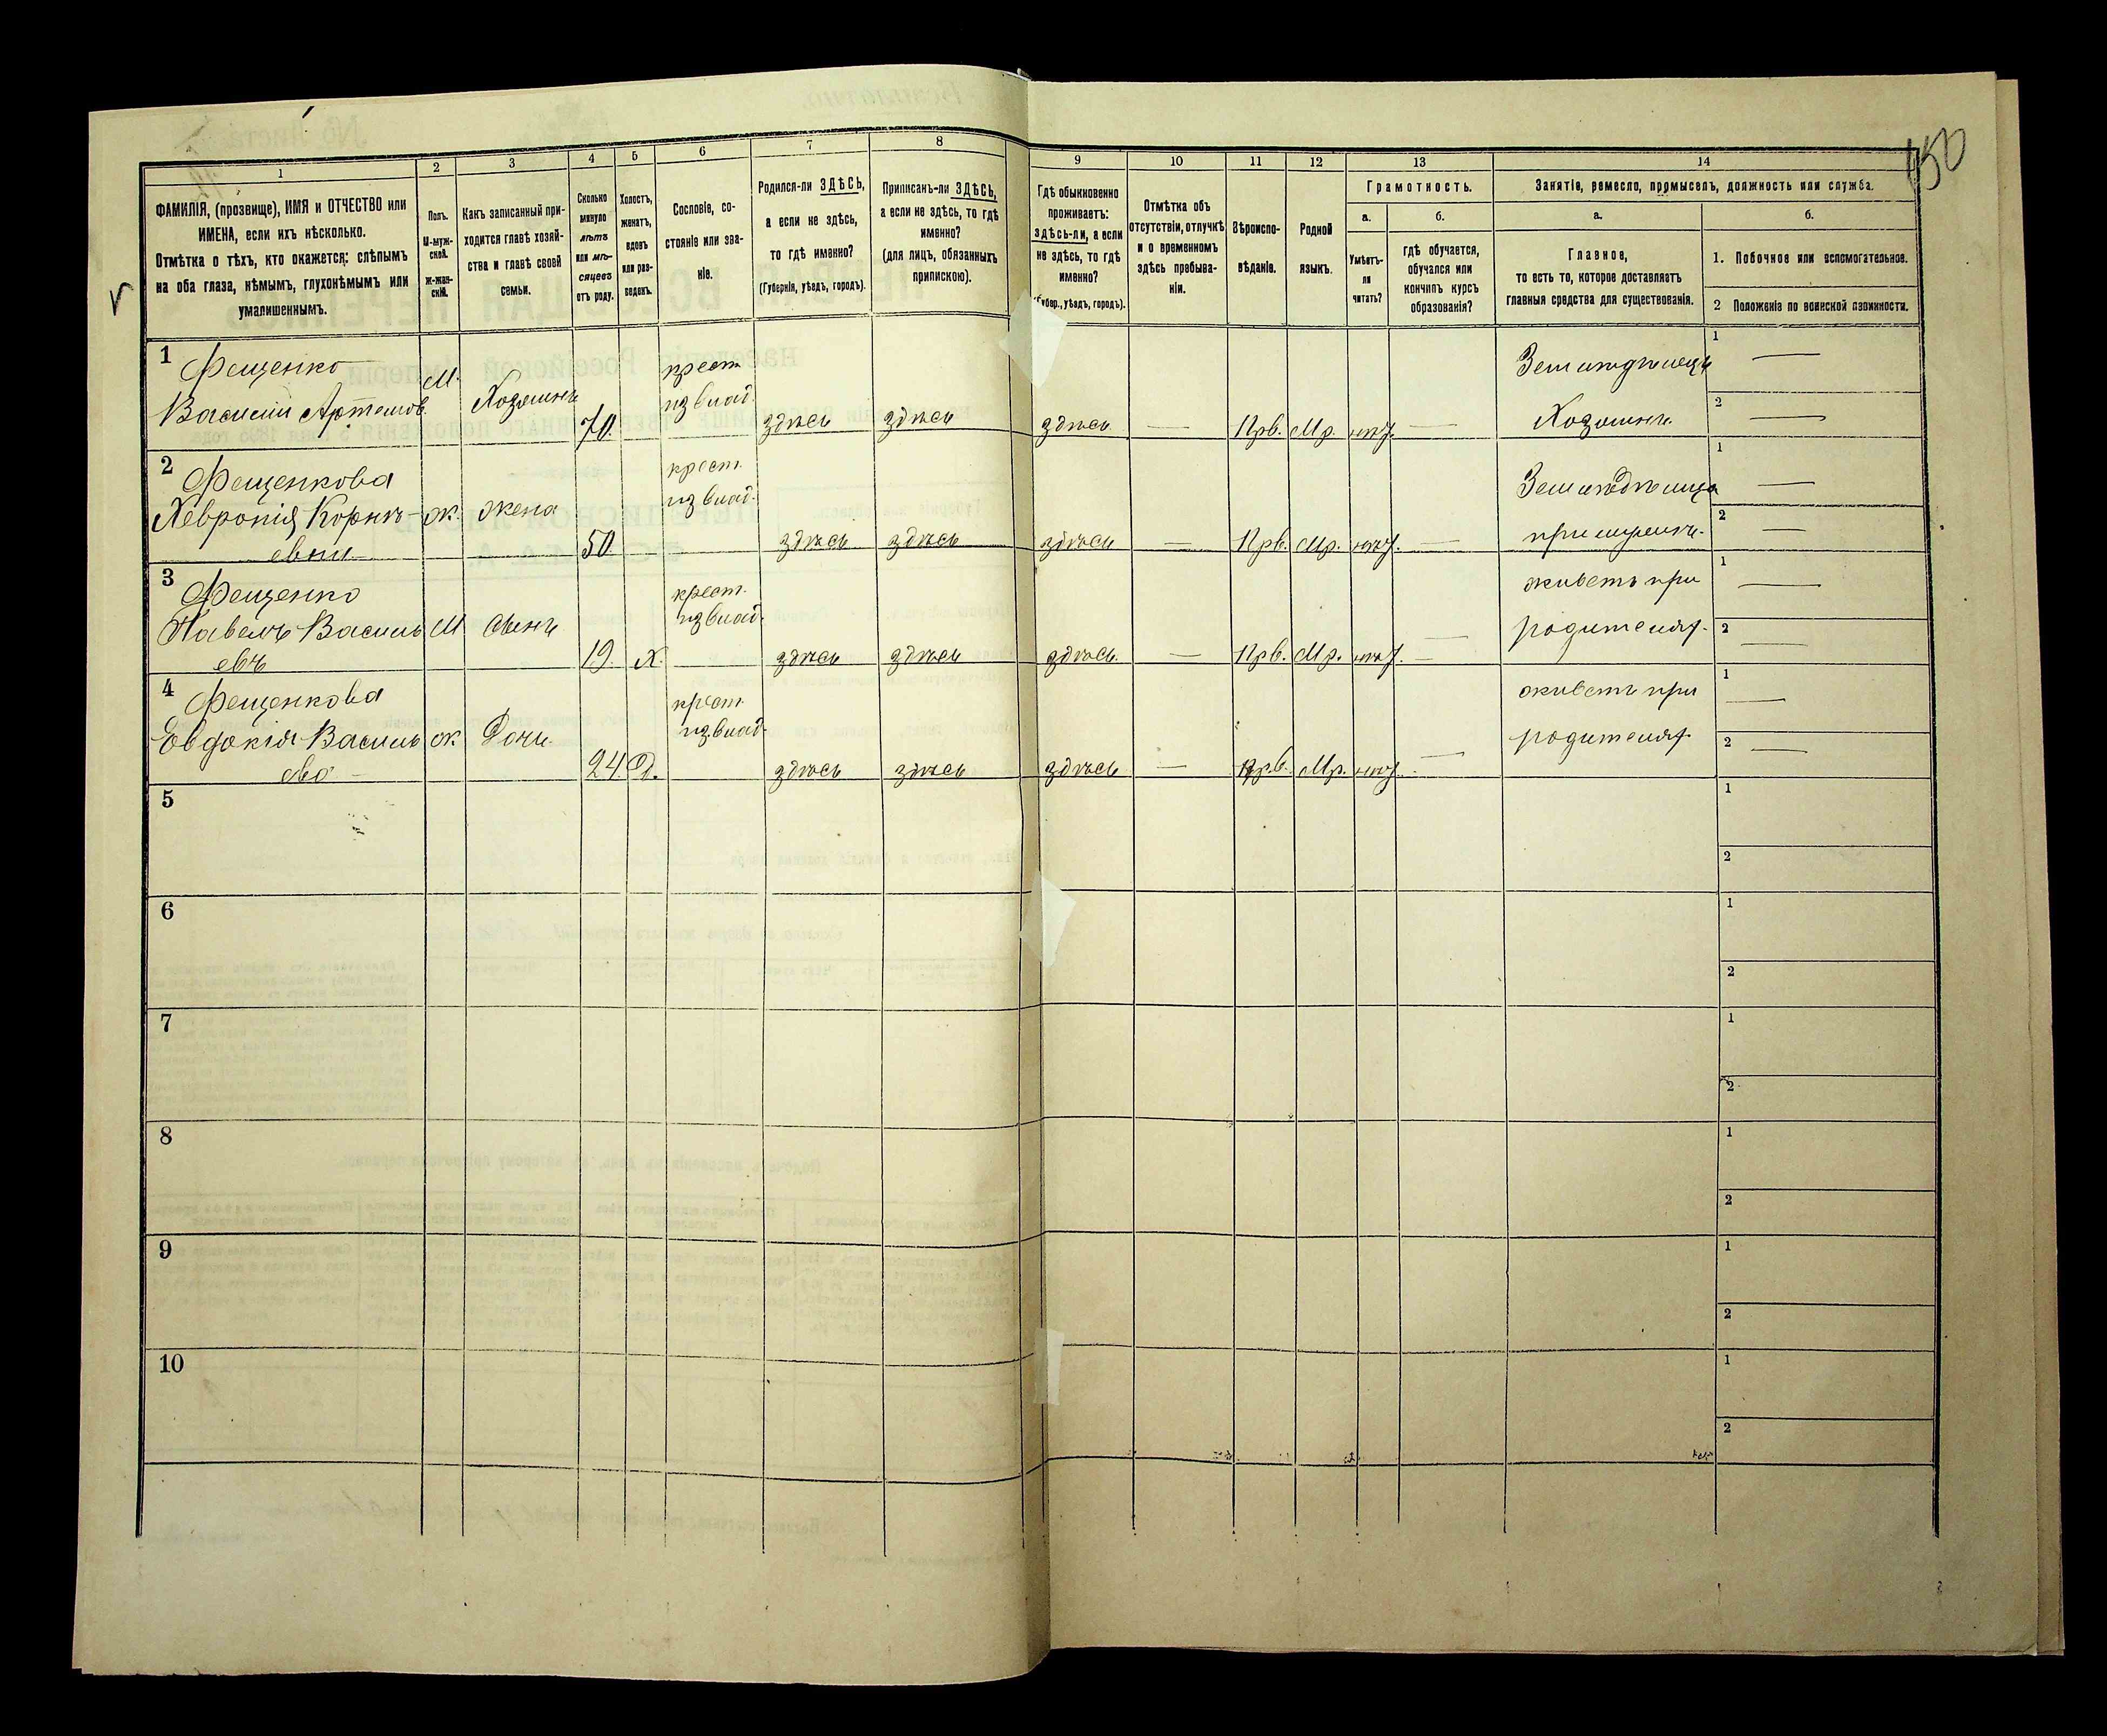 150
1
2
3
4
5
6
7
8
9
10
11
12
13
14
ФАМИЛІЯ, (прозвище), ИМЯ и ОТЧЕСТВО или
ИМЕНА, если ихъ нѣсколько.
Отмѣтка о тѣхъ, кто окажется: слѣпымъ
на оба глаза, нѣмымъ, глухонѣмымъ или
умалишеннымъ.
Полъ.
М-муж-
ской.
Ж-жен-
скій.
Какъ записанный при-
ходится главѣ хозяй-
ства и главѣ своей
семьи.
Сколько
минуло
лѣтъ
или мѣ-
сяцевъ
отъ роду.
Холостъ,
женатъ,
вдовъ
или раз-
веденъ.
Сословіе, со-
стояніе или зва-
ніе.
Родился-ли ЗДѢСЬ,
а если не здѣсь,
то гдѣ именно?
(Губернія, уѣздъ, городъ).
Приписанъ-ли ЗДѢСЬ,
а если не здѣсь, то гдѣ
именно?
(для лицъ, обязанныхъ
припискою).
Гдѣ обыкновенно
проживаетъ:
здѣсь-ли, а если
не здѣсь, то гдѣ
именно?
(Губер., уѣздъ, городъ).
Отмѣтка объ
отсутствіи, отлучкѣ
и о временномъ
здѣсь пребыва-
ніи.
Вѣроиспо-
вѣданіе.
Родной
языкъ.
Грамотность.
а.
б.
Умѣетъ-
ли
читать?
гдѣ обучается,
обучался или
кончилъ курсъ
образованія?
Занятіе, ремесло, промыселъ, должность или служба.
а.
б.
Главное,
то есть то, которое доставляетъ
главныя средства для существованія.
1. Побочное или вспомогательное.
2 Положеніе по воинской повинности.
1
Фещенко
Василий Артемов.
М.
Хозяинъ
70.
крест.
из влад.
здѣсь
здѣсь
здѣсь
—
Прв.
Мр.
нѣт.
—
Земледѣлецъ
Хозяинъ.
1 —
2 —
2
Фещенкова
Хевронія Корнѣ-
евни
ж.
жена
50
крест.
из влад.
здѣсь
здѣсь
здѣсь
—
Прв.
Мр.
нѣт.
—
Земледѣлица
при мужѣ.
1 —
2 —
3
Фещенко
Павелъ Василь
евъ
М
сынъ
19.
Х.
крест.
из влад.
здѣсь
здѣсь
здѣсь.
—
Прв.
Мр.
нѣт.
—
живетъ при
родителях.
1 —
2 —
4
Фещенкова
Евдокія Василь
ева
ж.
Дочь.
24.
Д.
крест.
из влад.
здѣсь
здѣсь
здѣсь
—
Прв.
Мр.
нѣт.
—
живетъ при
родителях
1 —
2 —
5
1
2
6
1
2
7
1
2
8
1
2
9
1
2
10
1
2